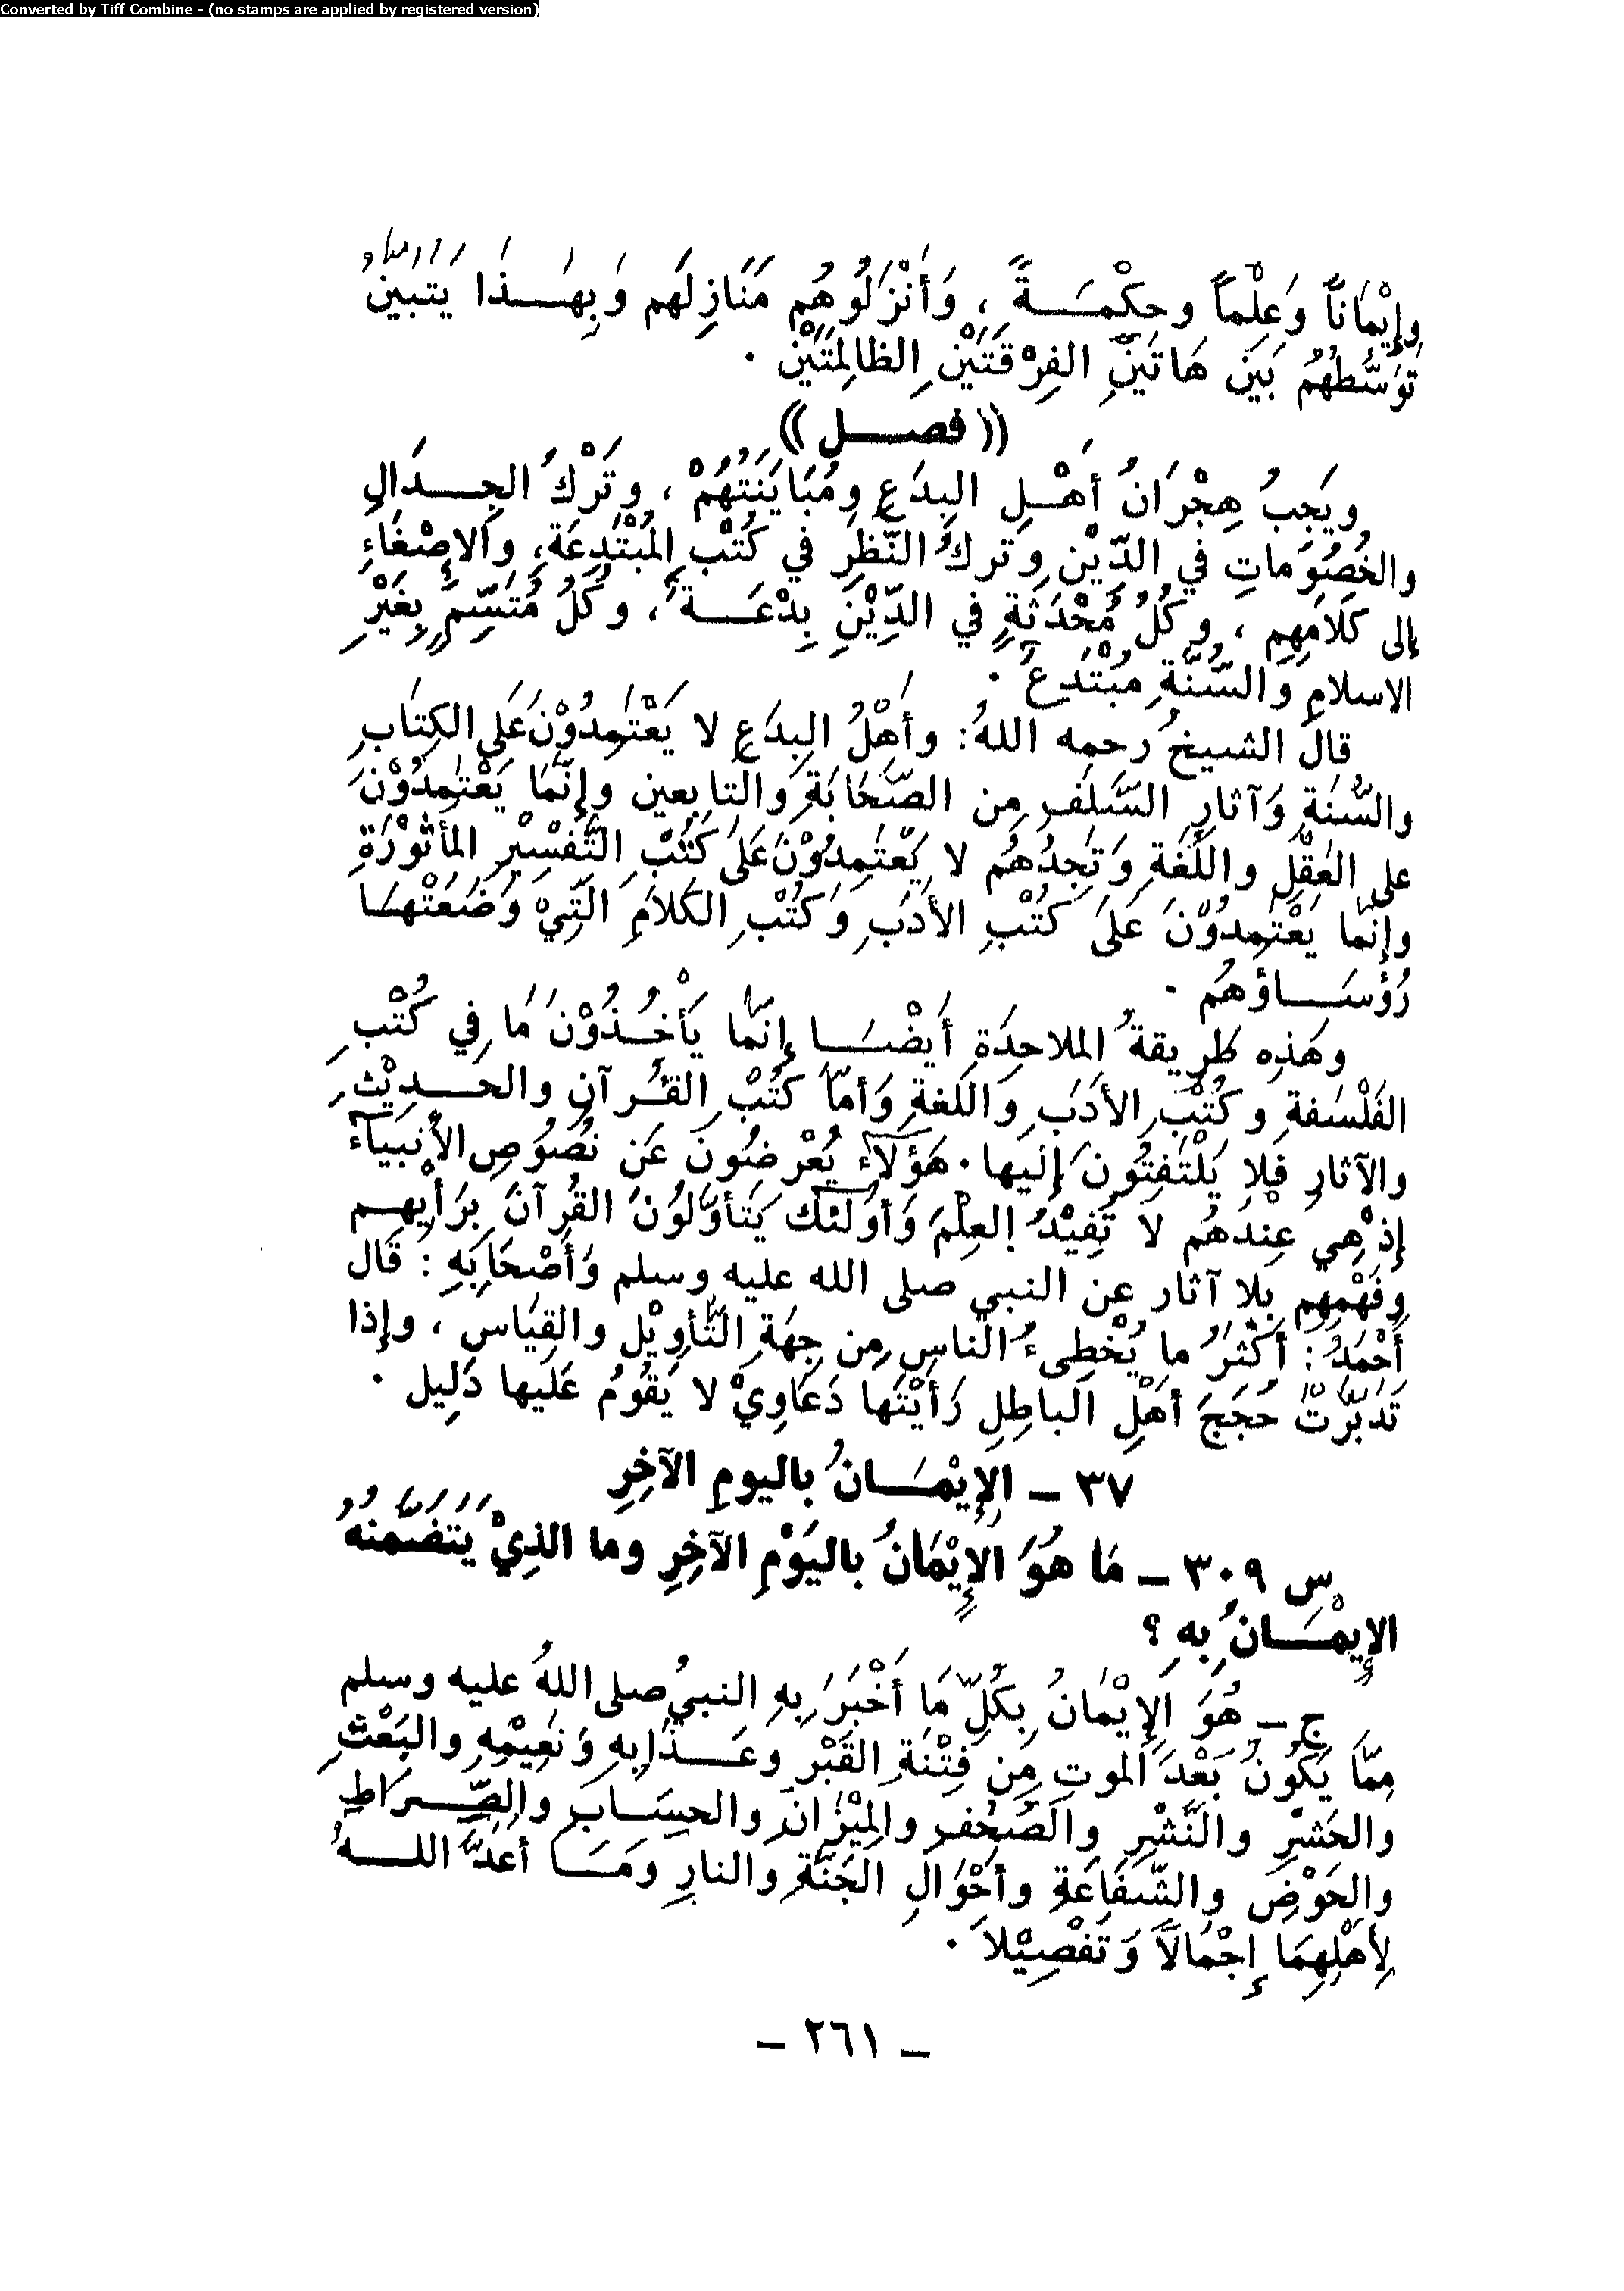 Converted by Tiff Combine - (no stamps are applied by registered version)
وإِيْمَاناً وَعِلْماً وحِكْمَةً ، وَأَنْزَلُوهُم مَنَازِلَهَم وَبِهَذا يَتَبَيَّنُ
تَوَسُّطُهُمْ بَيَن هَاتَيْنِ الفِرْقَتَيْنِ الظالِمَتَيْنِ .
(( فصل ))
ويَجِبُ هِجْرَانُ أَهْلِ البِدَعِ ومُبَايَنَتُهُمْ ، وتَرْكُ الجِدَالِ
والخُصُوَماتِ في الدِّيْنِ وَتركُ النَّظرِ في كُتْبِ المُبْتَدِعَةِ، والإِصْغَاءِ
إلى كَلامِهِم ، وكُلُ مُحْدَثَةٍ في الدِّيْنِ بِدْعَةٌ ، وكُلُ مُتَسِّمٍ بِغَيْرِ
الاسلامِ وَالسُّنَّةِ مُبْتَدِعٌ .
قالَ الشيخُ رحمه اللهُ: وأَهْلُ البِدَعِ لا يَعْتَمِدُوْنَ عَلى الكِتَابِ
والسُّنَةِ وَآثارِ السَّلَفِ مِن الصَّحَابَةِ والتابِعين وإِنَّمَا يَعْتَمِدُوْنَ
على العَقْلِ واللُّغَةِ وَتَجِدُهُم لا يَعْتَمِدُوْنَ عَلىَ كُتُبِ التَّفْسِيْرِ المأثوْرَةِ
وإِنَّما يَعْتَمِدُوْنَ عَلىَ كُتْبِ الأَدَبِ وَكُتْبِ الكَلاَمِ الَّتِيْ وَضَعَتْهَا
رُؤَسَاؤُهُم .
وهَذِه طَرِيقةُ الملاحِدَةِ أَيضْاً إِنَّمَا يَأْخُذُوْنَ مَا فِي كُتْبِ
الفَلْسَفةِ وكُتْبِ الأَدَبِ وَاللُّغةِ وَأَمّا كُتْبُ القُرآنِ والحَدِيْثِ
والآثارِ فَلا يَلْتَفِتُونَ إِليها . هَؤُلآءِ يُعْرِضُونَ عَن نُصُوَصِ الأَنبيآءِ
إِذْ هِي عِنْدهُم لا تُفِيْدُ العِلْمَ وَأُولَئِكَ يَتَأَوَّلُوَنَ القُرآنَ بِرَأْيِهِم
وفَهْمِهِم بِلا آثار عن النبي صلى الله عليه وسلم وَأَصْحَابِهِ : قَال
أَحْمَدُ : أَكْثَرُ ما يُخْطِىءُ الناسِ مِن جِهَةِ التَّأوِيْلِ والقِيَاسِ ، وإِذا
تَدَبَّرْتَ حُجَجَ أَهْلِ الباطِلِ رَأَيْتَها دَعَاوِيْ لا يَقُومُ عَليها دَلِيل .
٣٧ ــ الإِيْمَانُ باليومِ الآخِرِ
س ٣٠٩ ــ مَا هُوَ الإِيْمَانُ باليَوْمِ الآخِرِ وما الذِيْ يَتَضَمَّنُهُ
الإِيْمَانُ بِهِ ؟
ج ــ هُوَ الإِيْمَانُ بِكُلِّ مَا أَخْبَرَ بِهِ النبيُ صلى اللهُ عليه وسلم
مِمَّا يَكُونُ بَعْدَ الموتِ مِن فِتْنَةِ القَبْرِ وعَذَابِهِ وَنَعِيْمِهِ والبَعْثِ
والحَشْرِ والنَّشْرِ والصُّحُفِ والمِيْزَانِ والحِسَابِ والصِّرَاطِ
والحَوْضِ والشَّفَاعَةِ وأَحْوَالِ الجَنَّةِ والنارِ ومَا أَعدَّ اللهُ
لِأَهْلِهِمَا إِجْمَالاً وَتَفْصِيْلاً .
ــ ٢٦١ ــ